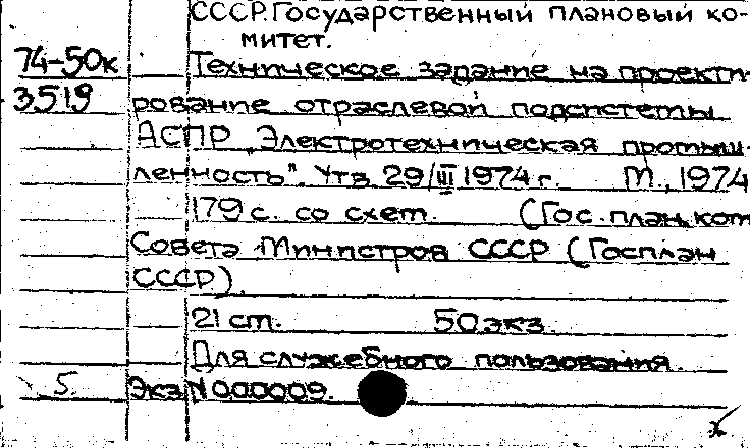 СССР. Государственный плановый ко-
митет.
74-50к Техническое задание на проекти-
3519 рование отраслевой подсистемы
АСПР „Электротехническая промыш-
ленность". Утв. 29/III 1974 г. М., 1974
179 с. со схем. (Гос. план. ком.
Совета Министров СССР (Госплан
СССР).
21 см. 50 экз.
Для служебного пользования.
5. Экз. N 000009.